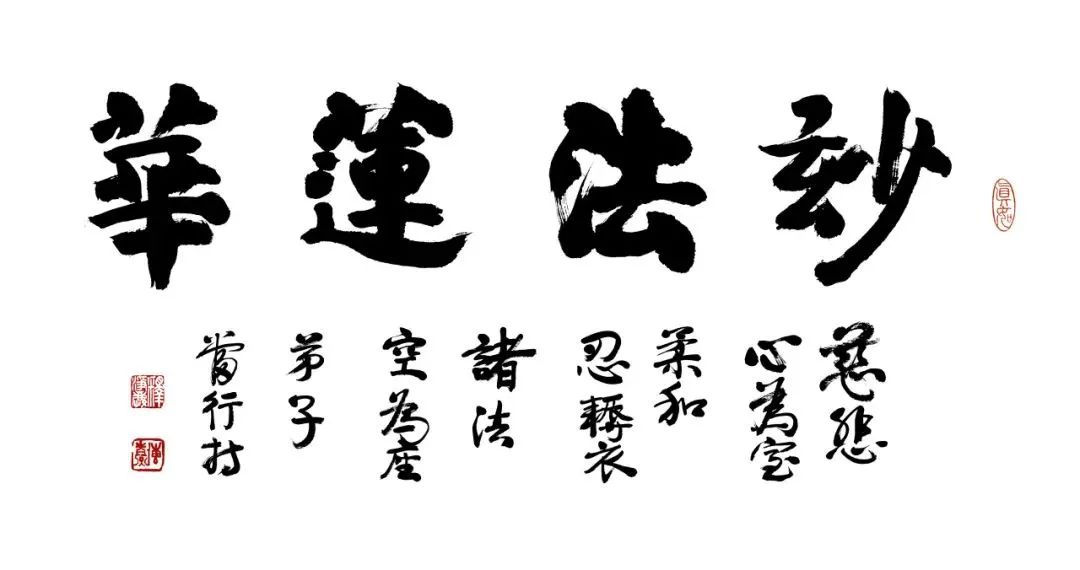 玅法蓮華
真如
慈悲
心為室
柔和
忍辱衣
諸法
空為座
弟子
當行持